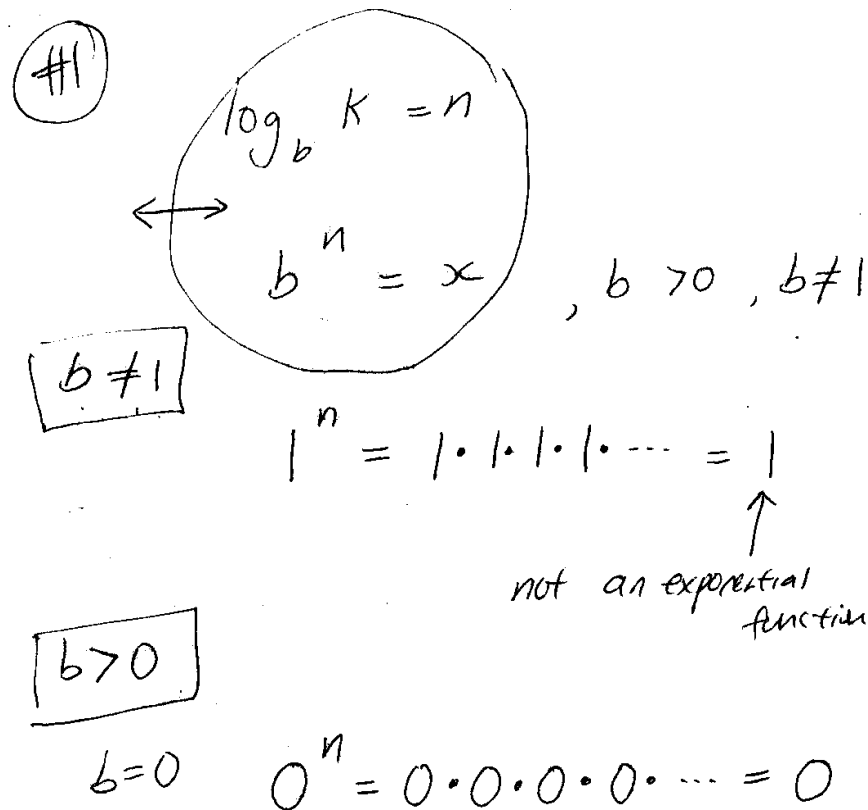 #1
log_b K = n
↔
b^n = x , b > 0 , b ≠ 1
b ≠ 1
1^n = 1 · 1 · 1 · 1 · ... = 1
↑
not an exponential
function
b > 0
b = 0 0^n = 0 · 0 · 0 · 0 · ... = 0